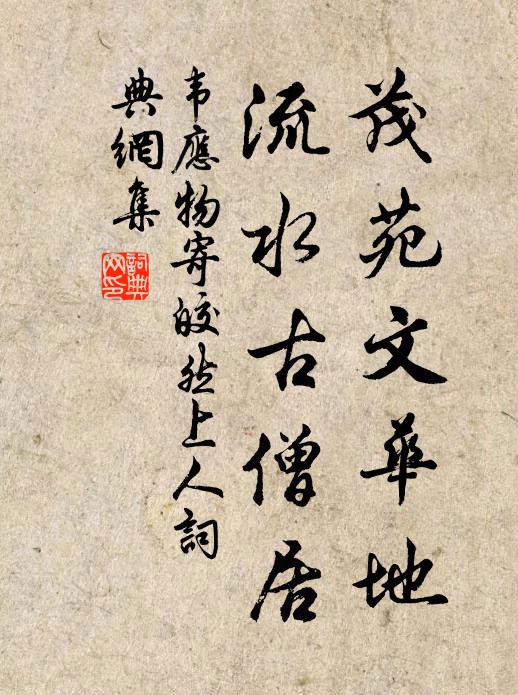 茂苑文華地
流水古僧居
韦應物寄皎然上人詞
典網集
詞典網印